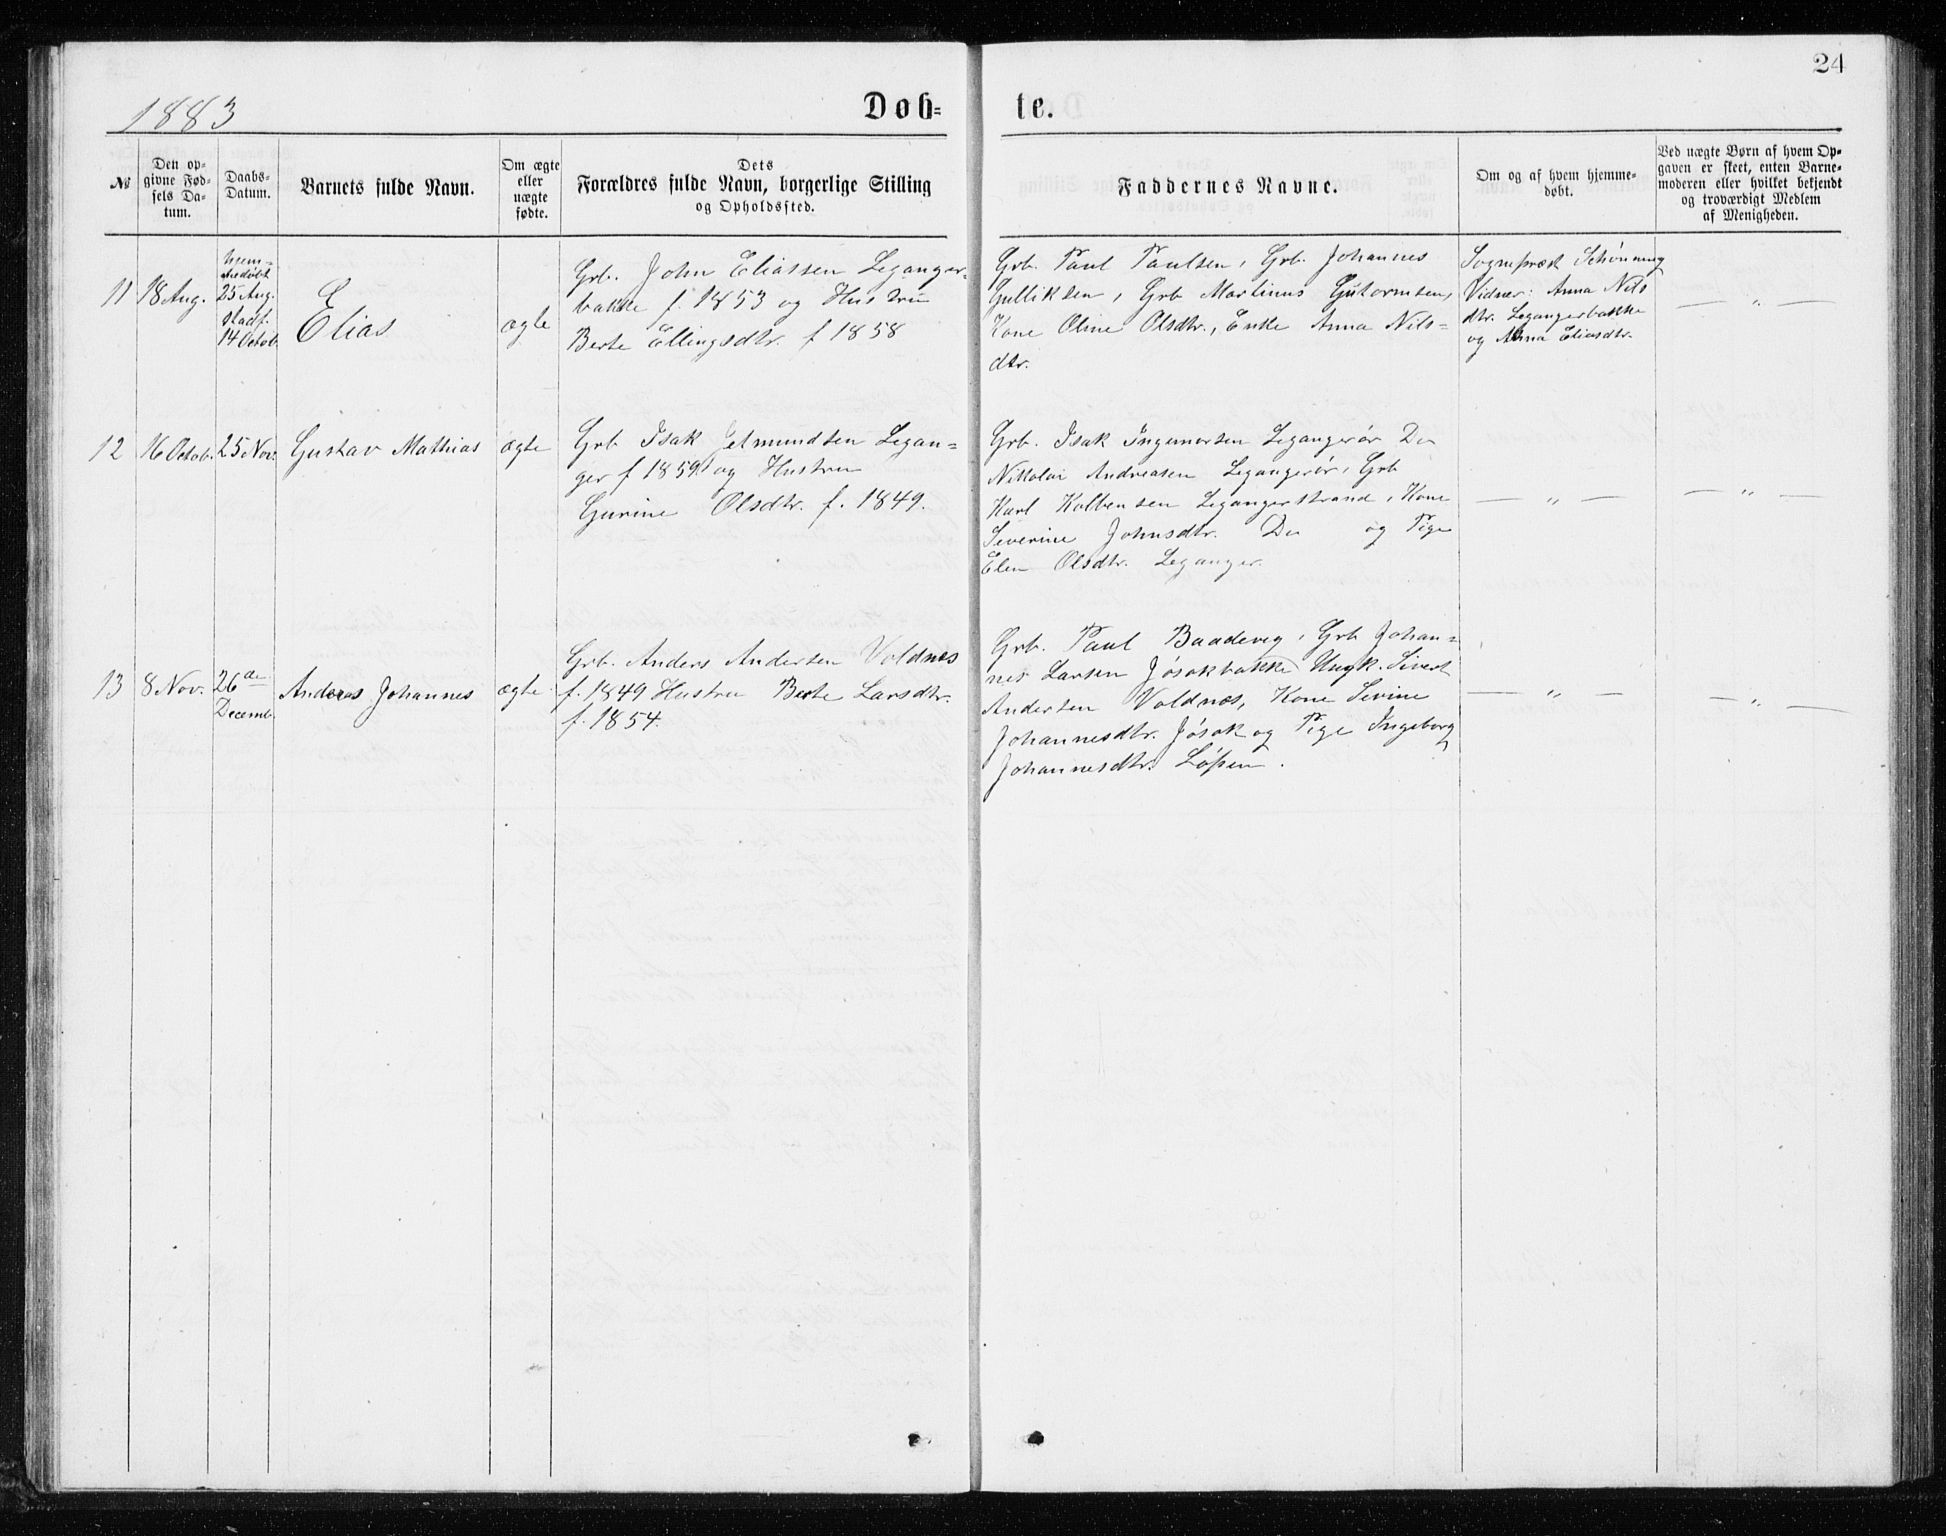 24
1883
Døb=
te.
№
Den op-
givne Fød-
sels Da-
tum.
Daabs-
Datum.
Barnets fulde Navn.
Om ægte
eller
uægte
fødte.
Dets
Forældres fulde Navn, borgerlige Stilling
og Opholdssted.
Faddernes Navne.
Om og af hvem hjemme-
døbt.
Ved uægte Børn af hvem Op-
gaven er skeet, enten Barne-
moderen eller hvilket bekjendt
og troværdigt Medlem
af Menigheden.
11
18 Aug.
Hjem=
medøbt
25 Aug.
stadf.
14 Octob.
Elias
ægte
Grb. John Eliassen Leganger-
bakke f 1853 og Hustru
Berte Ellingsdtr. f 1858
Grb. Paul Paulsen, Grb. Johannes
Gulliksen, Grb Martinus Gutormsen,
Kone Oline Olsdtr., Enke Anna Nils=
dtr.
Sognepræst Schønning
Vidner: Anna Nils
dtr. Legangerbakke
og Anna Eliasdtr.
— „ —
12
16 Octob.
25 Nov.
Gustav Mathias
ægte
Grb Isak Jetmundsen Legan=
ger f 1859 og Hustru
Gurine Olsdtr. f. 1849.
Grb. Isak Ingemorsen Legangerør Do
Nikolai Andreasen Legangerør, Grb
Karl Kolbensen Legangerstrand, Kone
Severine Johnsdtr. Do og Pige
Elen Olsdtr. Leganger.
— „ —
— „ —
13
8 Nov.
26de
Decemb.
Anders Johannes
ægte
Grb. Anders Andersen Voldnes
f. 1849 Hustru Berte Larsdtr.
f. 1854.
Grb. Paul Baadevig, Grb Johan=
nes Larsen Jøsokbakke Ungk. Sivert
Andersen Voldnes, Kone Sevine
Johannesdtr. Jøsok og Pige Ingeborg
Johannesdtr. Løpsen.
— „ —
— „ —